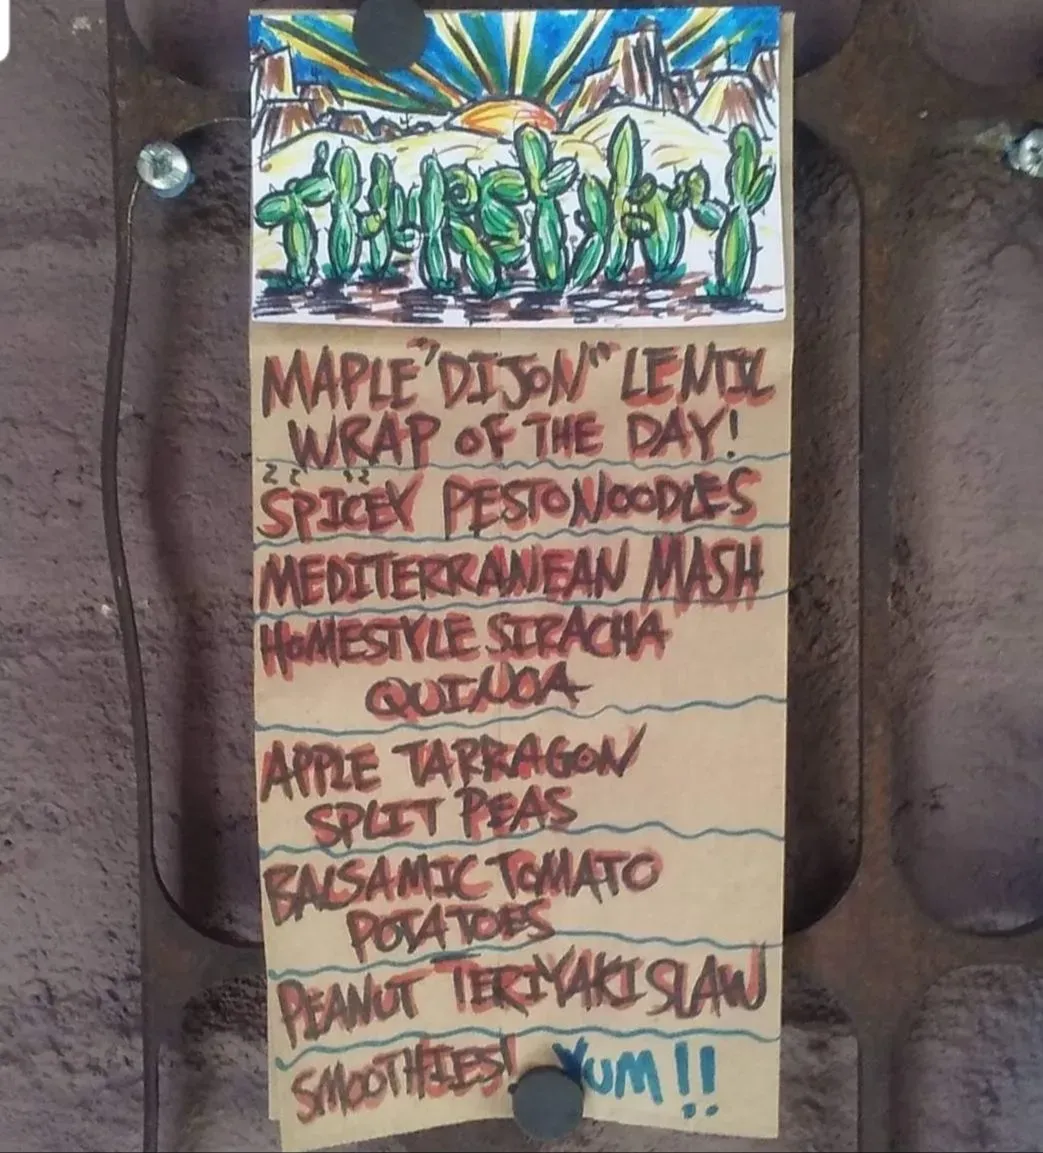 THURSDAY
MAPLE "DIJON" LENTIL
WRAP OF THE DAY!
SPICEY PESTO NOODLES
MEDITERRANEAN MASH
HOMESTYLE SIRACHA
QUINOA
APPLE TARRAGON
SPLIT PEAS
BALSAMIC TOMATO
POTATOES
PEANUT TERIYAKI SLAW
SMOOTHIES! YUM!!